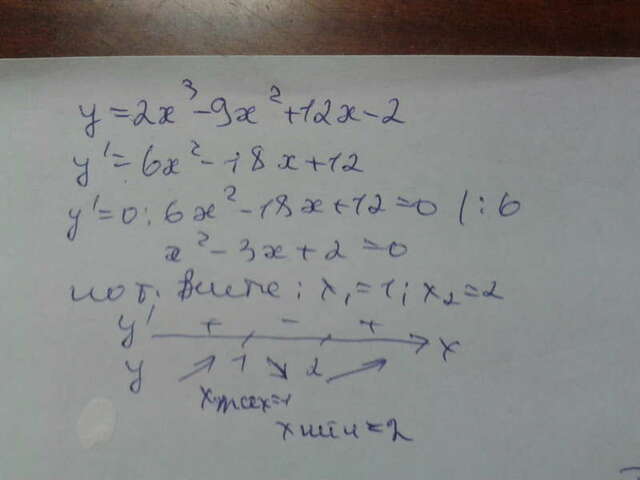 y = 2x³ - 9x² + 12x - 2
y' = 6x² - 18x + 12
y' = 0: 6x² - 18x + 12 = 0 / : 6
x² - 3x + 2 = 0
по т. Виета: x₁ = 1; x₂ = 2
y' + - + x
y ↗ 1 ↘ 2 ↗
xmax=1
xмін=2